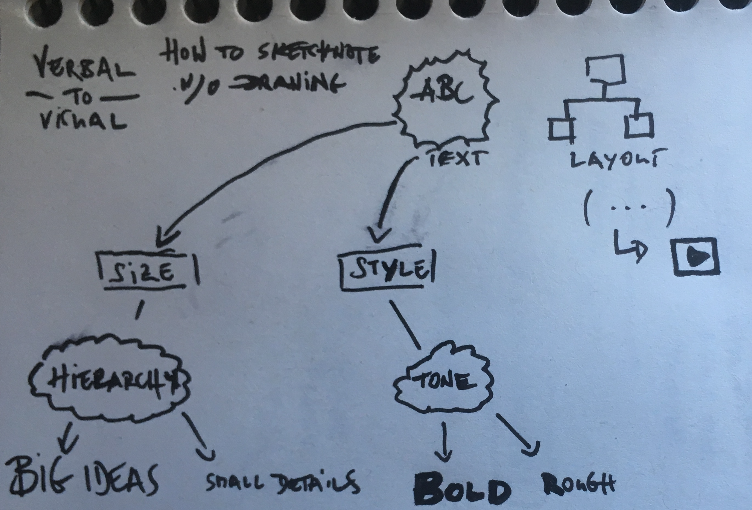 VERBAL
TO
VISUAL
HOW TO SKETCHNOTE
W/O DRAWING
ABC
TEXT
LAYOUT
(...)
SIZE
STYLE
HIERARCHY
TONE
BIG IDEAS
SMALL DETAILS
BOLD
ROUGH